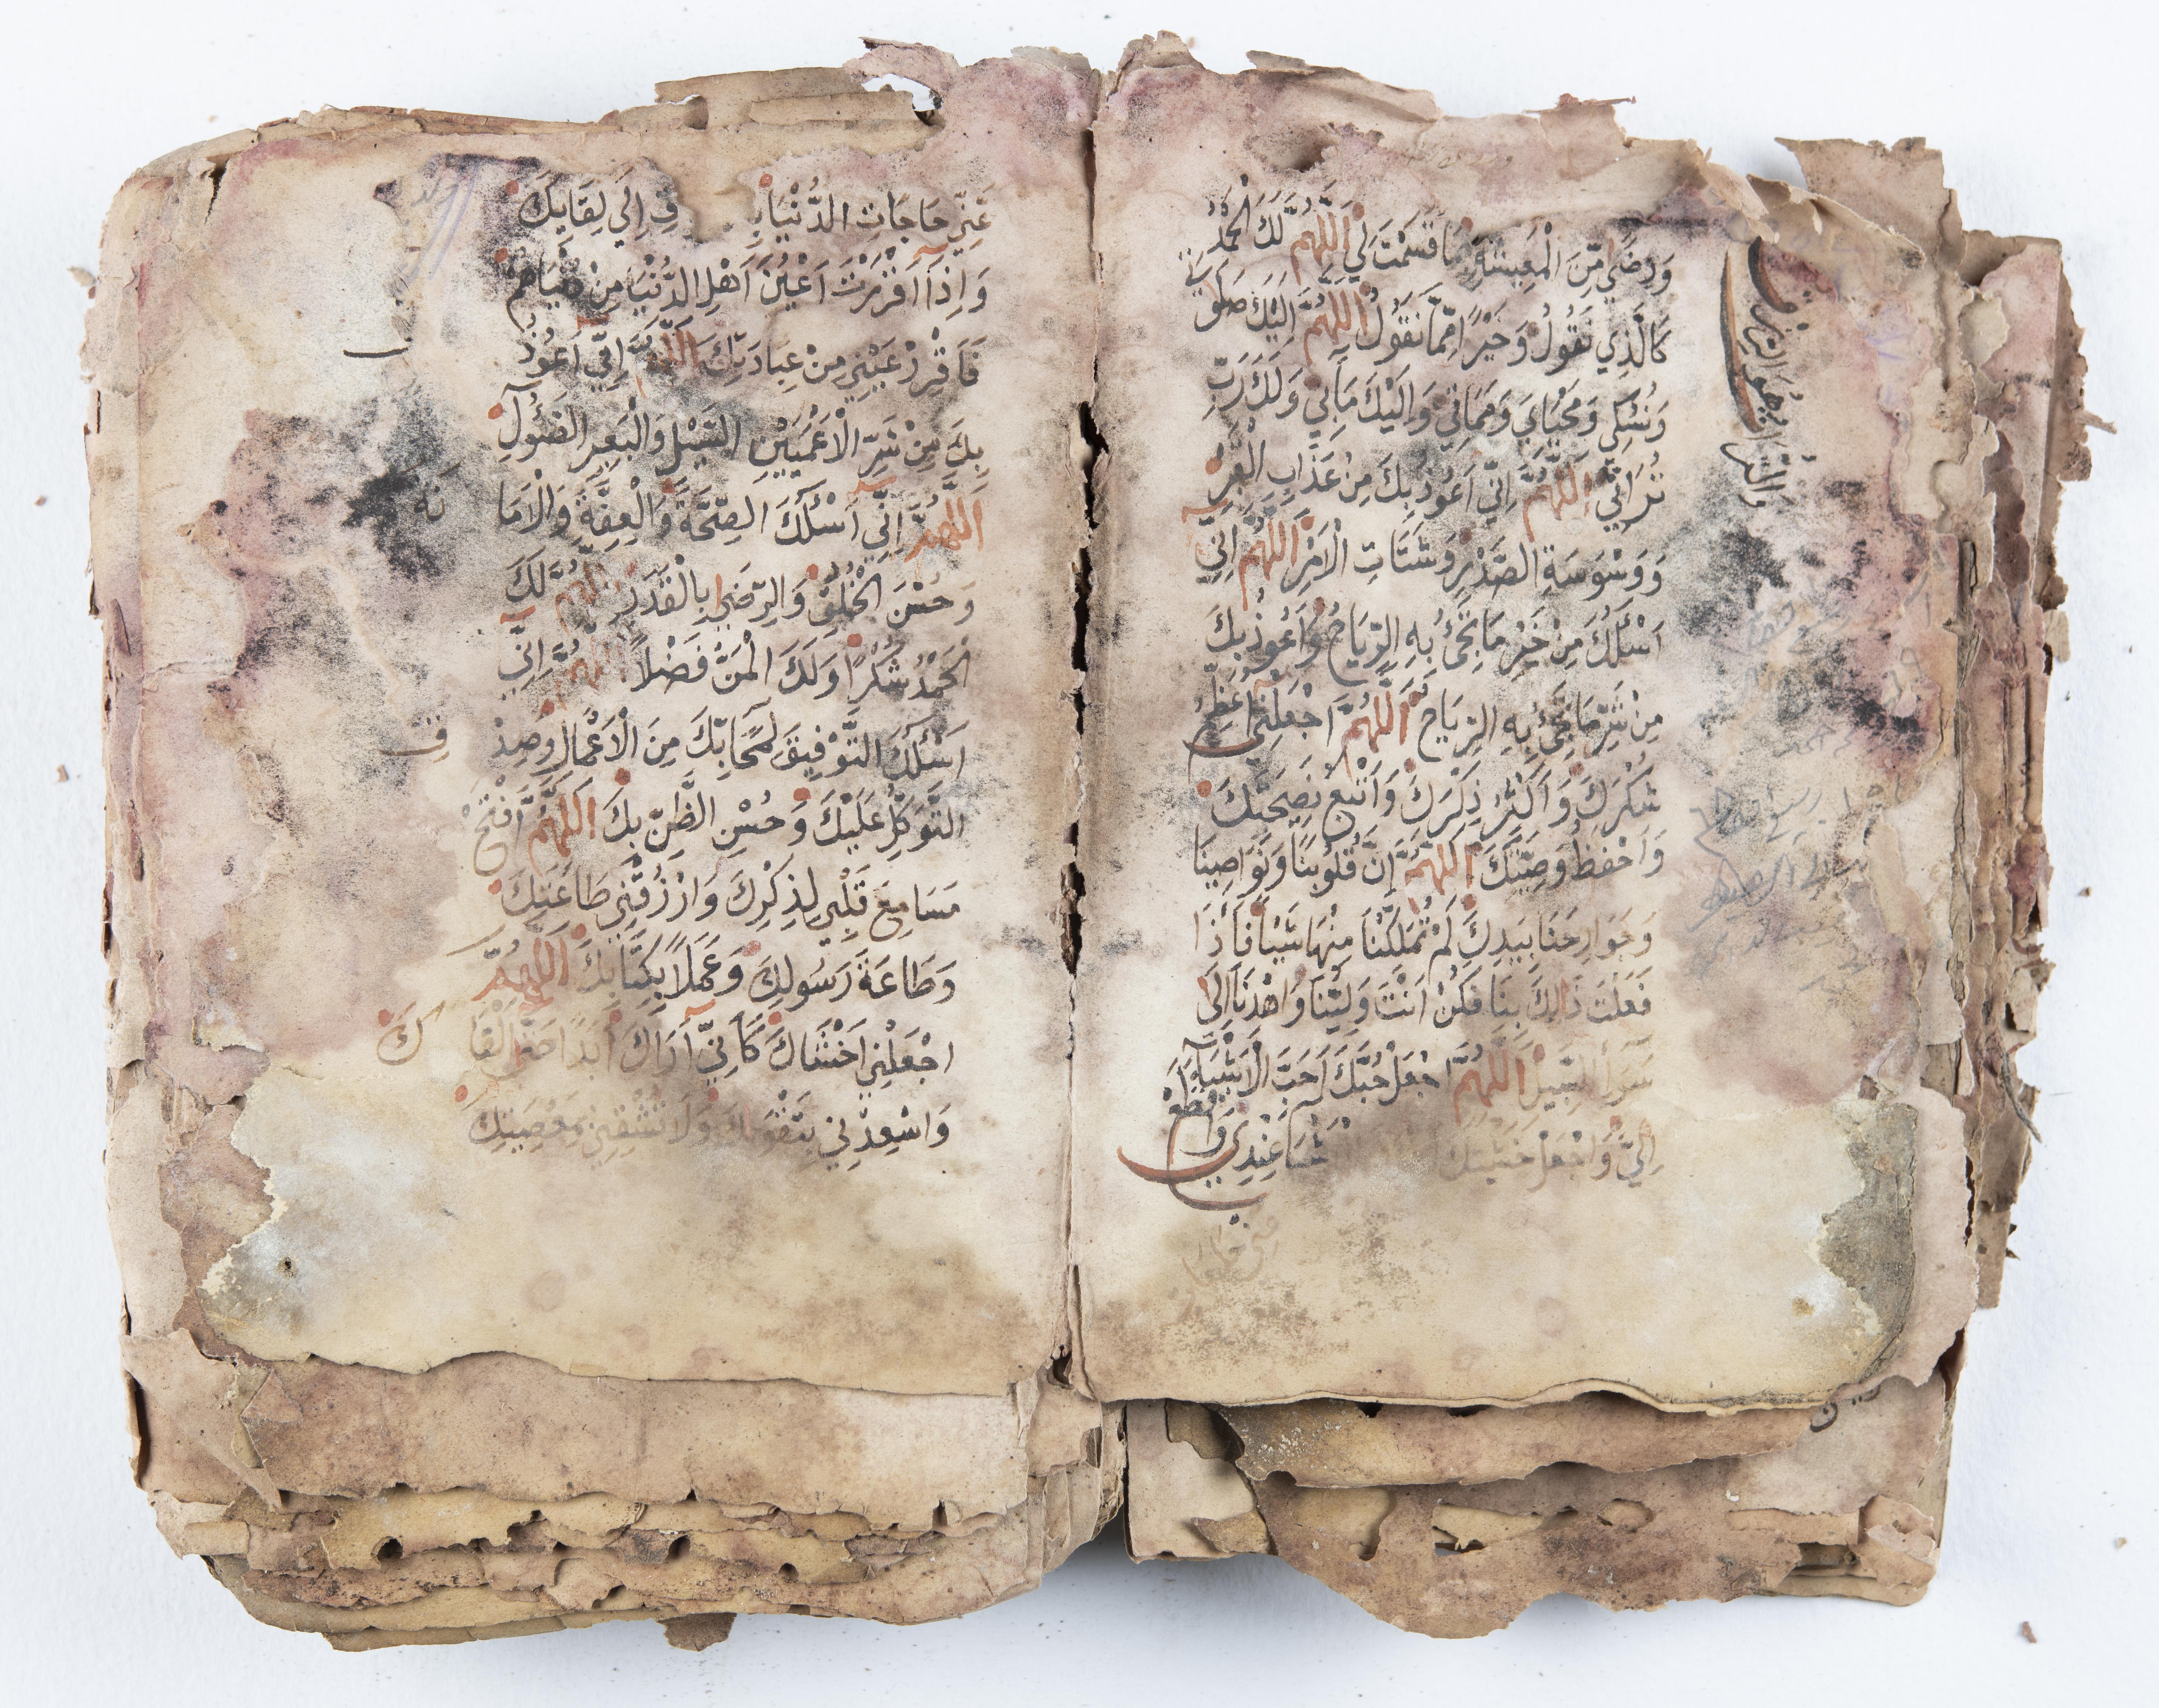 وَرِضًى مِنَ الْمَعِيشَةِ بِمَا قَسَمْتَ لِي اَللّٰهُمَّ لَكَ الْحَمْدُ
كَالَّذِي نَقُولُ وَخَيْرًا مِمَّا نَقُولُ اَللّٰهُمَّ اِلَيْكَ صَلَوتِي
وَنُسُكِي وَمَحْيَايَ وَمَمَاتِي وَاِلَيْكَ مَآبِي وَلَكَ رَبِّ
تُرَاثِي اَللّٰهُمَّ اِنِّي اَعُوذُ بِكَ مِنْ عَذَابِ الْقَبْرِ
وَوَسْوَسَةِ الصَّدْرِ وَشَتَاتِ الْاَمْرِ اَللّٰهُمَّ اِنِّي
اَسْئَلُكَ مِنْ خَيْرِ مَا تَجِئُ بِهِ الرِّيَاحُ وَاَعُوذُ بِكَ
مِنْ شَرِّ مَا تَجِئُ بِهِ الرِّيَاحُ اَللّٰهُمَّ اجْعَلْنِي اُعَظِّمُ
شُكْرَكَ وَاُكْثِرُ ذِكْرَكَ وَاَتَّبِعُ نَصِيحَتَكَ
وَاَحْفَظُ وَصِيَّتَكَ اَللّٰهُمَّ اِنَّ قُلُوبَنَا وَنَوَاصِينَا
وَجَوَارِحَنَا بِيَدِكَ لَمْ تُمَلِّكْنَا مِنْهَا شَيْئًا فَاِذَا
فَعَلْتَ ذَالِكَ بِنَا فَكُنْ اَنْتَ وَلِيَّنَا وَاهْدِنَا اِلَى
سَوَاءِ السَّبِيلِ اَللّٰهُمَّ اجْعَلْ حُبَّكَ اَحَبَّ الْاَشْيَاءِ
اِلَيَّ وَاجْعَلْ خَشْيَتَكَ عِنْدِي وَاقْطَعْ
عَنِّي حَاجَاتِ الدُّنْيَا اِلَى لِقَائِكَ
وَاِذَا اَقْرَرْتَ اَعْيُنَ اَهْلِ الدُّنْيَا مِنْ دُنْيَاهُمْ
فَاَقْرِرْ عَيْنِي مِنْ عِبَادَتِكَ اَللّٰهُمَّ اِنِّي اَعُوذُ
بِكَ مِنْ شَرِّ الْاَعْمَيَيْنِ السَّيْلِ وَالْبَعِيرِ الصَّئُولِ
اَللّٰهُمَّ اِنِّي اَسْئَلُكَ الصِّحَّةَ وَالْعِفَّةَ وَالْاَمَانَةَ
وَحُسْنَ الْخُلُقِ وَالرِّضَى بِالْقَدَرِ اَللّٰهُمَّ لَكَ
الْحَمْدُ شُكْرًا وَلَكَ الْمَنُّ فَضْلًا اَللّٰهُمَّ اِنِّي
اَسْئَلُكَ التَّوْفِيقَ لِمَحَابِّكَ مِنَ الْاَعْمَالِ وَصِدْقَ
التَّوَكُّلِ عَلَيْكَ وَحُسْنَ الظَّنِّ بِكَ اَللّٰهُمَّ افْتَحْ
مَسَامِعَ قَلْبِي لِذِكْرِكَ وَارْزُقْنِي طَاعَتَكَ
وَطَاعَةَ رَسُولِكَ وَعَمَلًا بِكِتَابِكَ اَللّٰهُمَّ
اجْعَلْنِي اَخْشَاكَ كَاَنِّي اَرَاكَ اَبَدًا حَتَّى اَلْقَاكَ
وَاسْعِدْنِي بِتَقْوَاكَ وَلَا تُشْقِنِي بِمَعْصِيَتِكَ